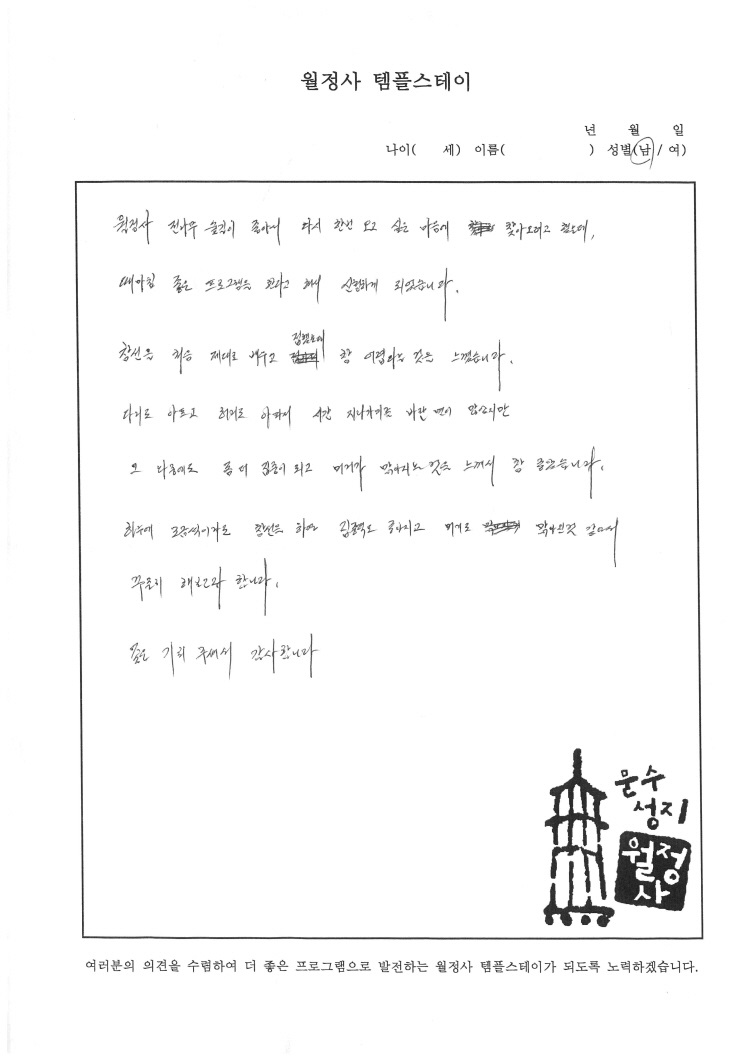 월정사 템플스테이
년 월 일
나이( 세) 이름( ) 성별(남/여)
월정사 전나무 숲길이 좋아서 다시 한번 오고 싶은 마음에 찾아오려고 했는데,
때마침 좋은 프로그램을 한다고 해서 신청하게 되었습니다.
참선을 처음 제대로 배우고 접했는데 참 어렵다는 것을 느꼈습니다.
다리도 아프고 허리도 아파서 시간 지나가기만 바란 면이 있지만
오 다음에는 좀 더 집중이 되고 머리가 맑아지는 것을 느껴서 참 좋았습니다.
하루에 조금씩이라도 참선을 하면 집중력도 좋아지고 머리도 맑아질것 같아서
꾸준히 해보고자 합니다.
좋은 기회 주셔서 감사합니다
문수
성지
월정
사
여러분의 의견을 수렴하여 더 좋은 프로그램으로 발전하는 월정사 템플스테이가 되도록 노력하겠습니다.